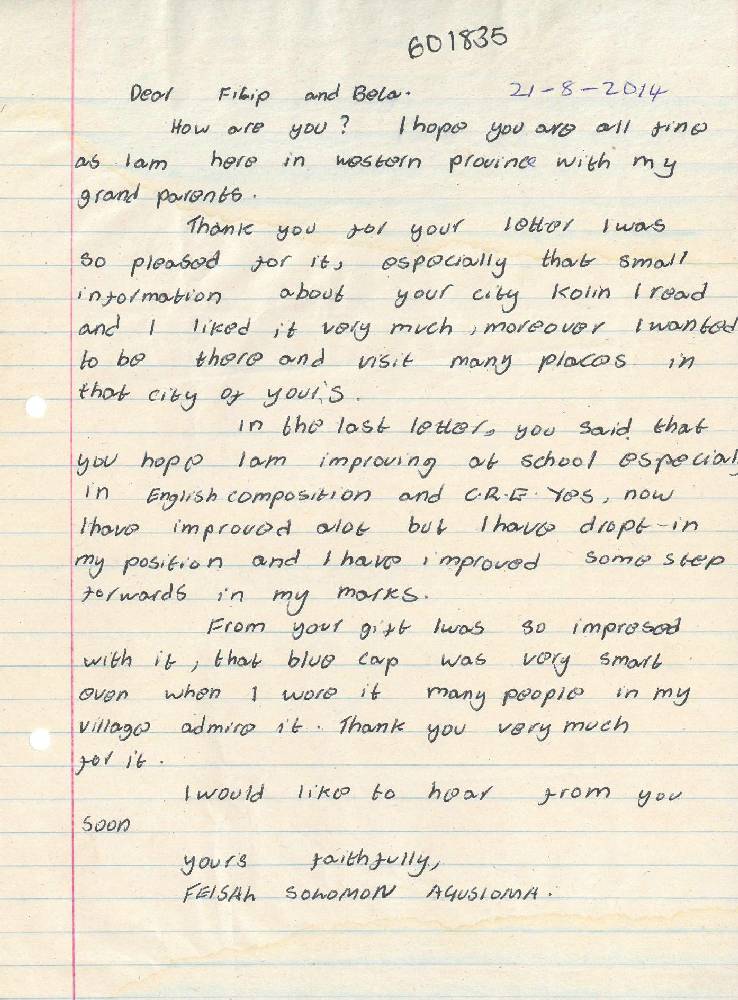 601835
Dear Filip and Bela. 21-8-2014
How are you? I hope you are all fine
as Iam here in western province with my
grand parents.
Thank you for your letter I was
so pleased for it, especially that small
information about your city Kolin I read
and I liked it very much, moreover I wanted
to be there and visit many places in
that city of your's.
In the last letter, you said that
you hope Iam improving at school especialy
in English composition and C.R.E. Yes, now
I have improved alot but I have dropt-in
my position and I have improved some step
forwards in my marks.
From your gift I was so impresed
with it, that blue cap was very smart
even when I wore it many people in my
village admire it. Thank you very much
for it.
I would like to hear from you
soon
yours faithfully,
FEISAL SOLOMON AGUSIOMA.